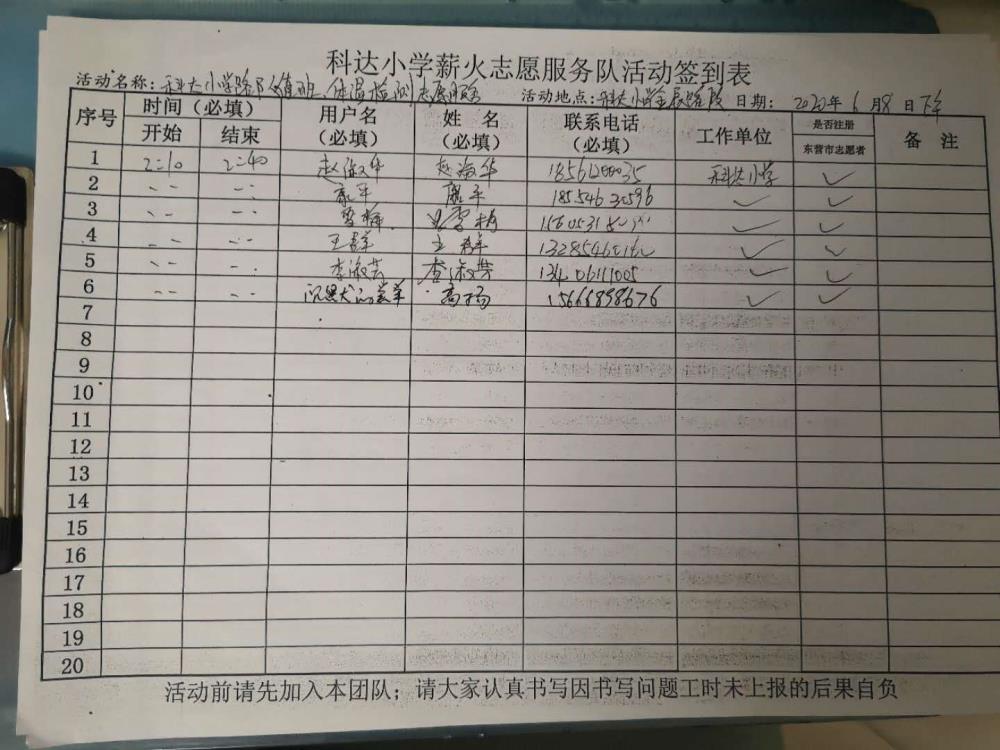 科达小学薪火志愿服务队活动签到表
活动名称：科达小学 值班、体温检测志愿服务 活动地点：科达小学 校区 日期：2020年6月8日下午
序号 时间（必填） 用户名（必填） 姓名（必填） 联系电话（必填） 工作单位 是否注册东营市志愿者 备注
开始 结束
1 2:10 2:40 赵淑华 赵淑华 科达小学 ✓
2 康平 康平 18554630596 ✓ ✓
3 ✓ ✓
4 王群 王群 ✓ ✓
5 李淑芸 李淑芸 ✓ ✓
6 高杨 15666898676 ✓ ✓
7
8
9
10
11
12
13
14
15
16
17
18
19
20
活动前请先加入本团队；请大家认真书写因书写问题工时未上报的后果自负